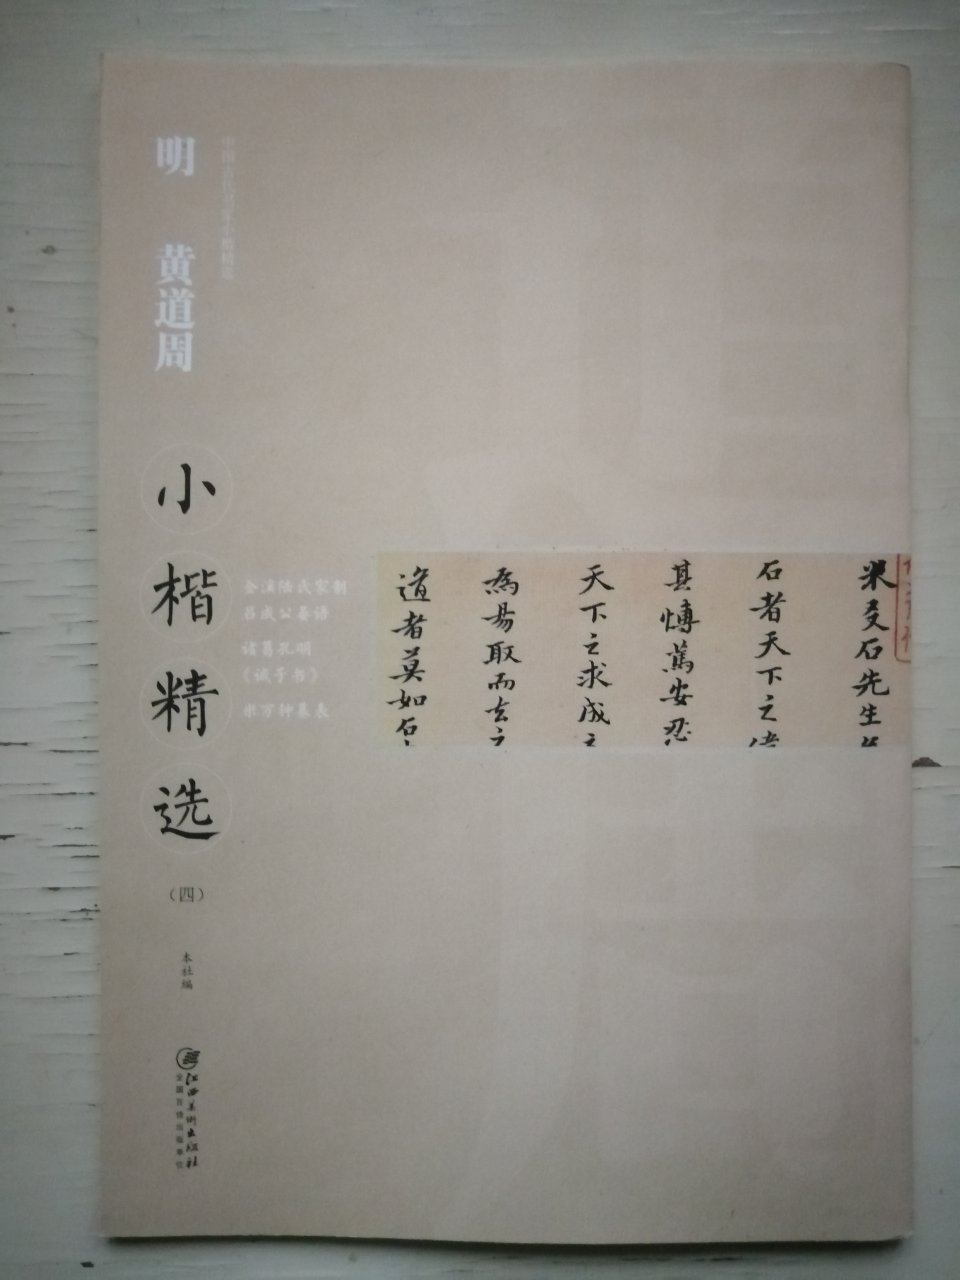 明 黄道周
中国古代书家小楷精选
小楷精选
（四）
金溪陆氏家制
吕成公晏语
诸葛孔明
《诫子书》
米万钟墓表
米友石先生
石者天下之
其愽萬安忍
天下之求成之
為易取而去之
道者莫如石
本社编
江西美术出版社
全国百佳出版单位